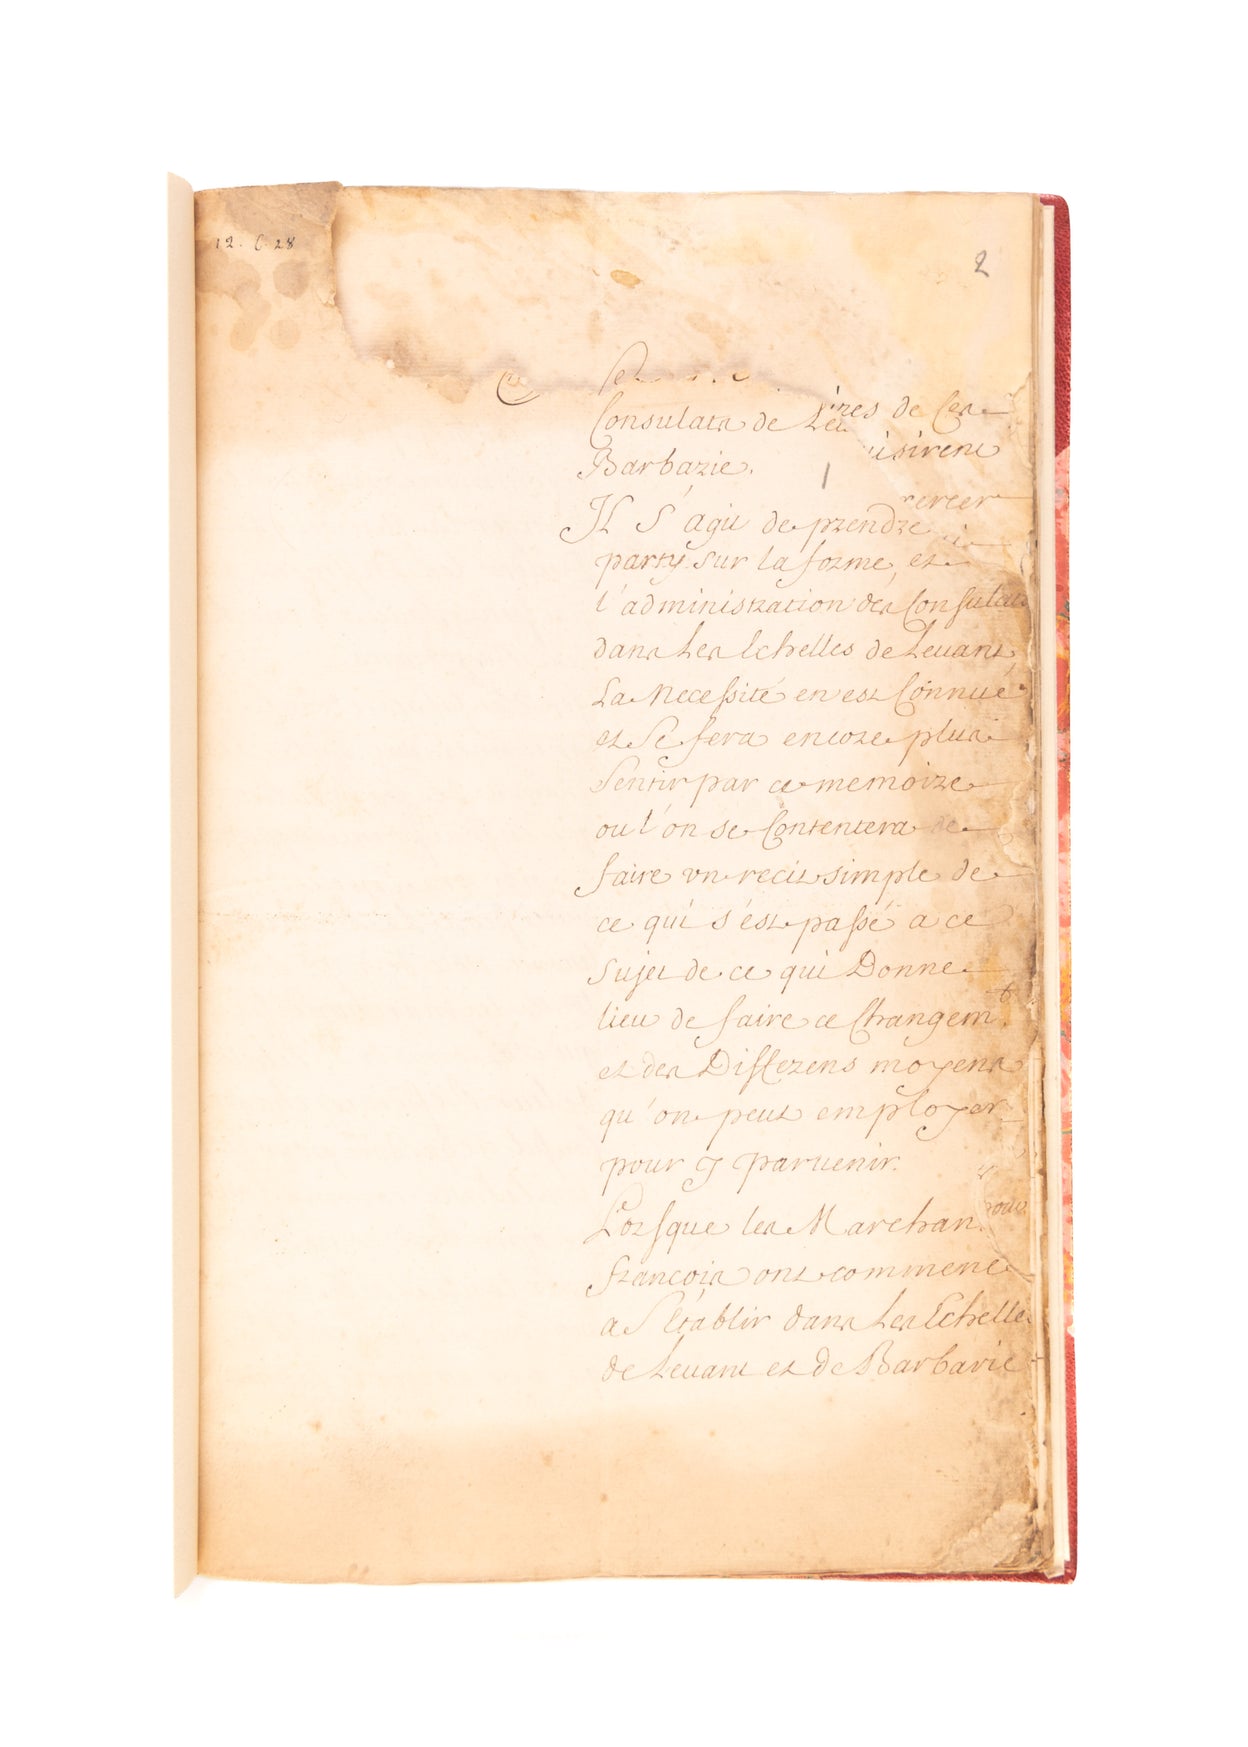 12. C. 28
2
Consulats de Leu
ires de Ces
Barbarie.
uisirent
Il S'agit de prendre
rercer
party sur la forme et
l'administration des Consulats
dans Les Echelles de Leuant
La Necessité en est Connuë
et Se fera encore plus
Sentir par ce memoire
ou l'on se Contentera de
faire vn recit simple de
ce qui s'est passé a ce
Sujet de ce qui Donne
lieu de faire ce Changemt.
et des Differens moyens
qu'on peut employer
pour y paruenir.
Lorsque les Marchan
francois ont commencé
a S'Etablir dans Les Echelles
de Leuant et de Barbarie